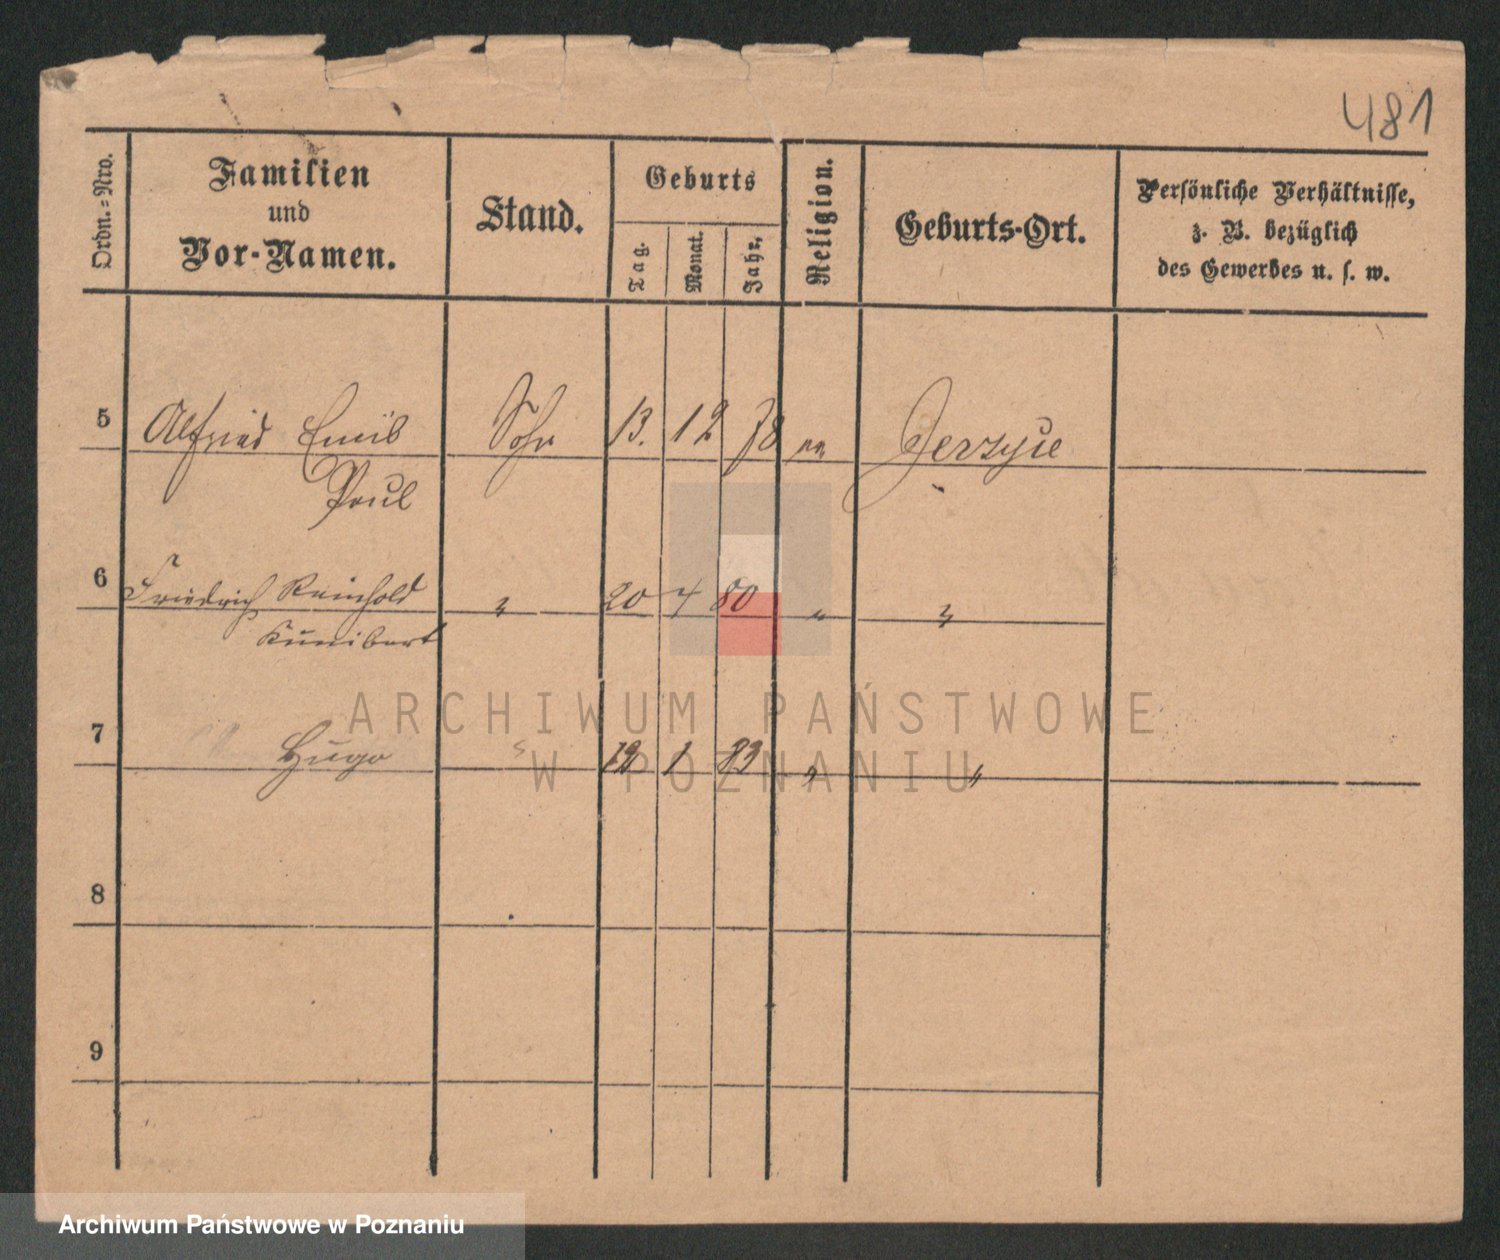 481
Ordn.=Nro.
Familien
und
Vor-Namen.
Stand.
Geburts
Tag.
Monat.
Jahr.
Religion.
Geburts-Ort.
Persönliche Verhältnisse,
z. B. bezüglich
des Gewerbes u. s. w.
5 Alfried Emil Sohn 13. 12 78 Jerzyce
Paul
6 Friedrich Reinhold " 20 4 80 " "
Kunibert
7 Hugo 12 1 83 " "
8
9
ARCHIWUM PAŃSTWOWE
W POZNANIU
Archiwum Państwowe w Poznaniu